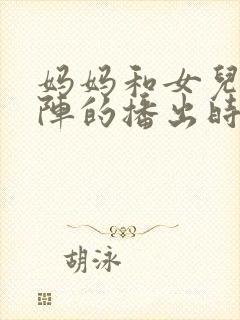 妈妈和女兒
陣的播出時
胡泳